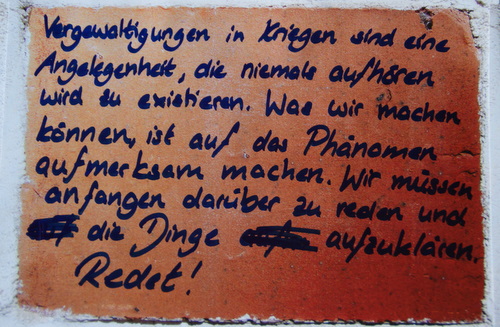 Vergewaltigungen in Kriegen sind eine
Angelegenheit, die niemals aufhören
wird zu existieren. Was wir machen
können, ist auf das Phänomen
aufmerksam machen. Wir müssen
anfangen darüber zu reden und
die Dinge aufzuklären.
Redet!